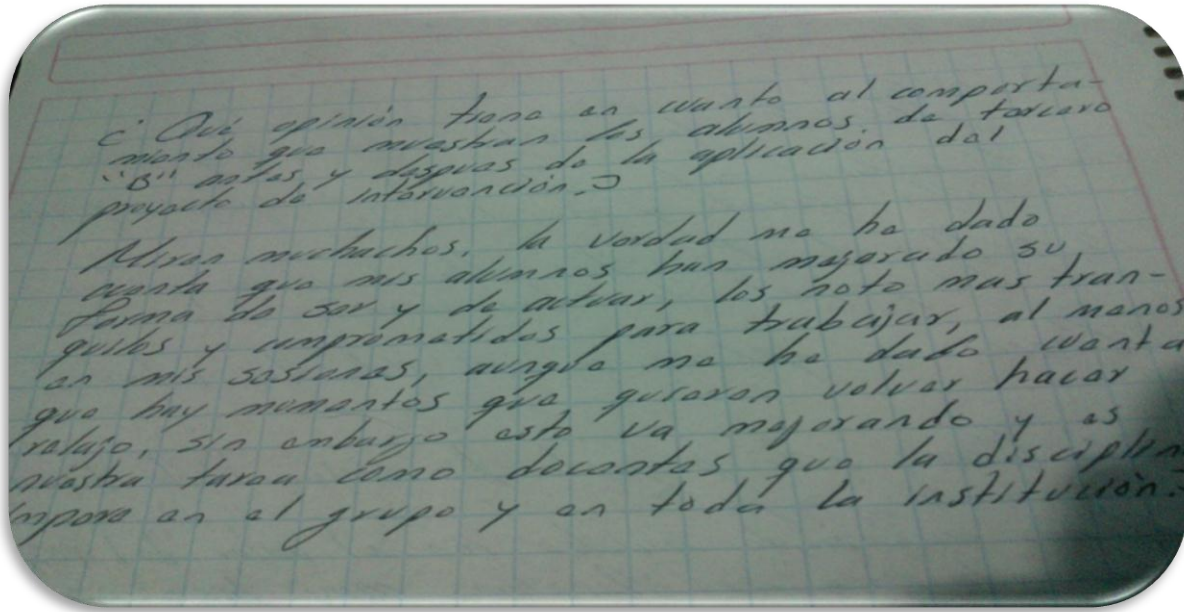 ¿Qué opinión tiene en cuanto al comporta-
miento que muestran los alumnos de tercero
"B" antes y despues de la aplicación del
proyecto de intervención.?
Miren muchachos, la verdad me he dado
cuenta que mis alumnos han mejorado su
forma de ser y de actuar, los noto mas tran-
quilos y comprometidos para trabajar, al menos
en mis sesiones, aunque me he dado cuenta
que hay momentos que quieren volver hacer
relajo, sin embargo esto va mejorando y es
nuestra tarea como docentes que la disciplin
impere en el grupo y en toda la institución.